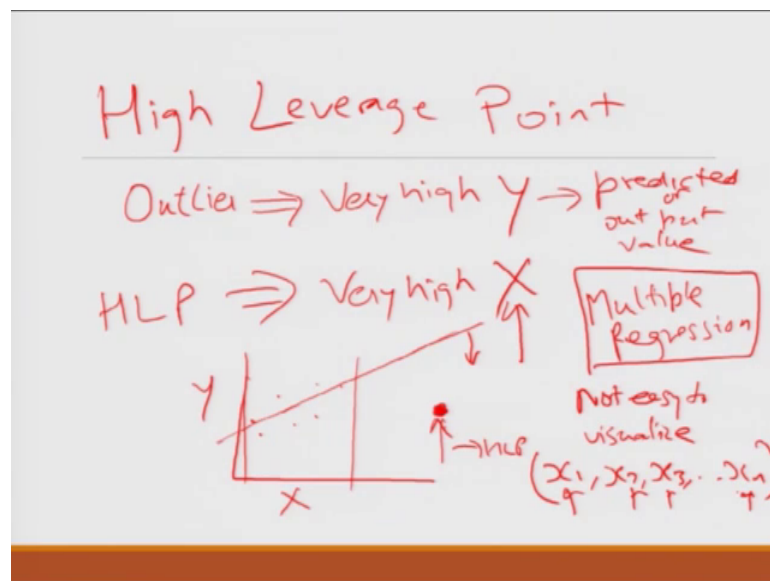 High Leverage Point
Outlier ⇒ Very high Y → predicted
or
out put
value
HLP ⇒ Very high X
Multiple
Regression
Y
X
→ HLP
Not easy to
visualize
(x1, x2, x3, ... xn)